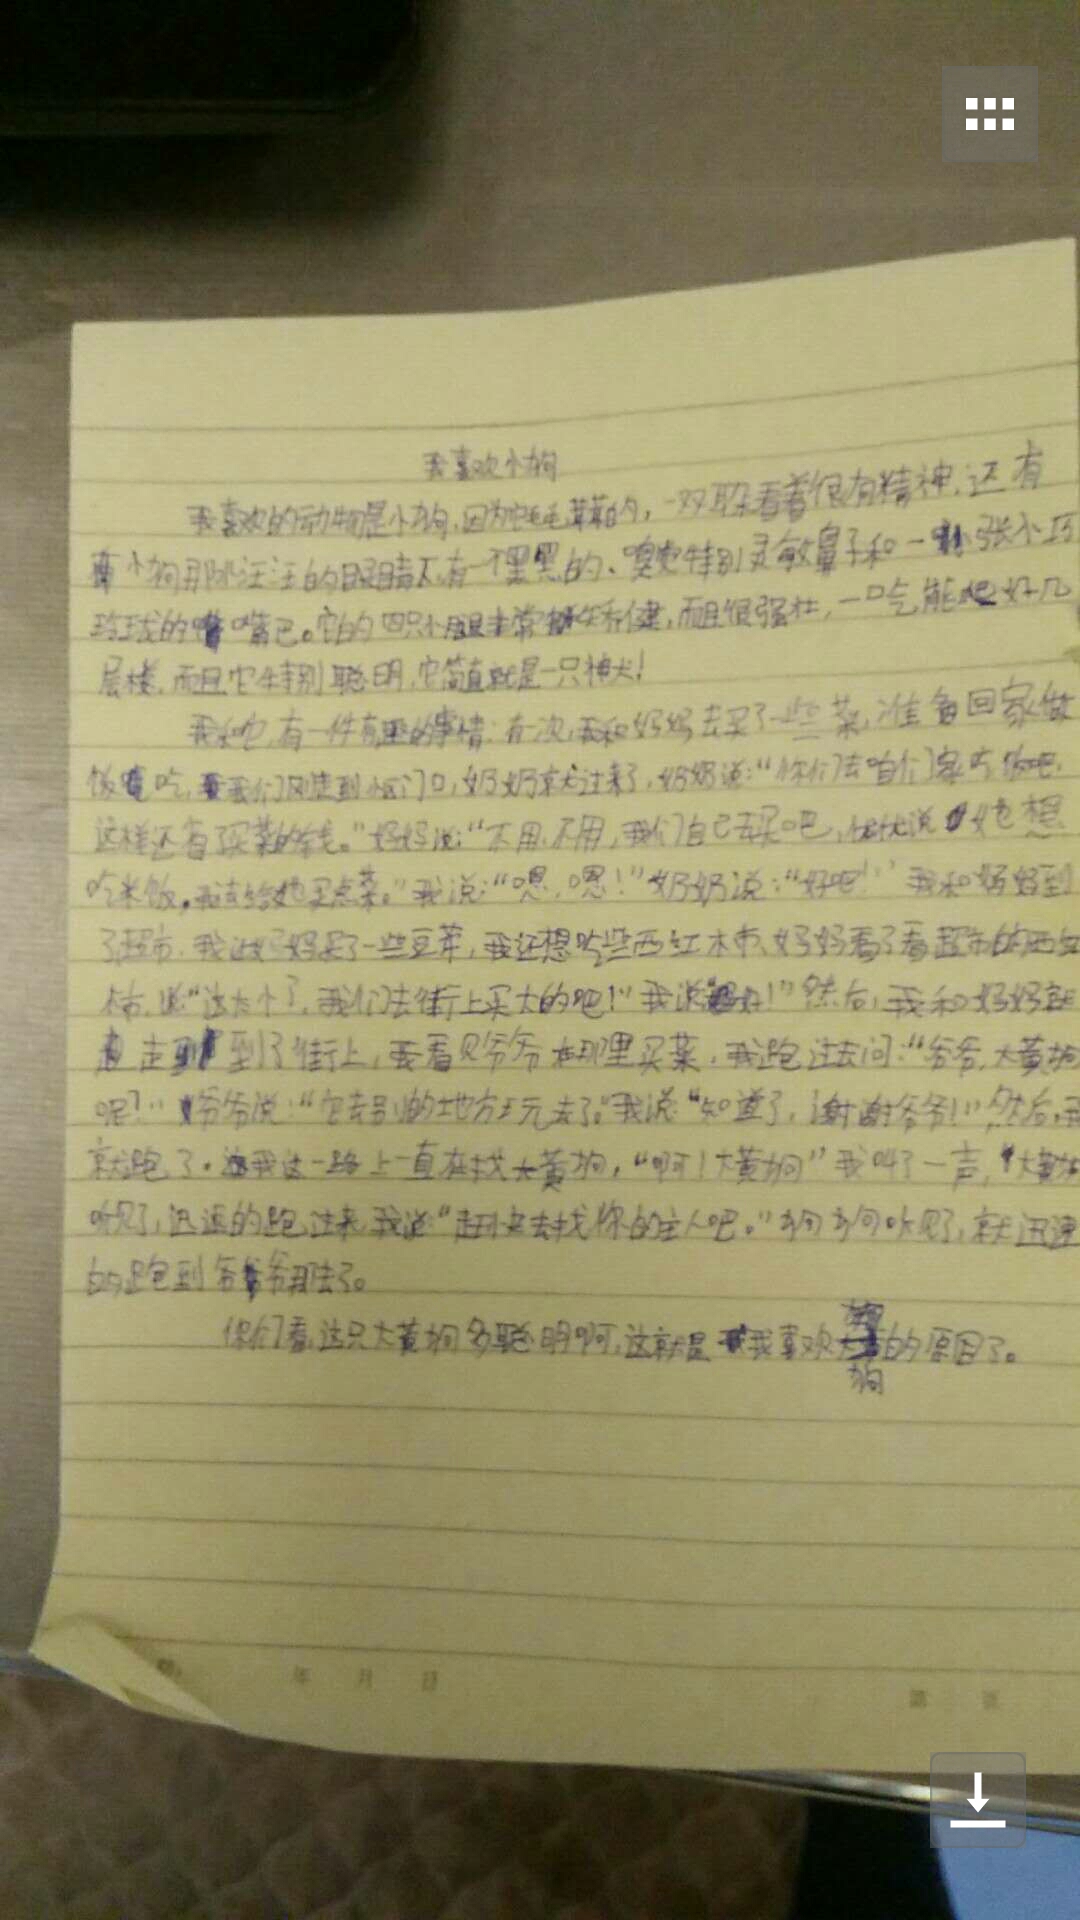 我喜欢小狗
我喜欢的动物是小狗,因为它毛茸茸的,一双耳朵看着很有精神,还有
小狗那水汪汪的眼睛下,有一个黑黑的、嗅觉特别灵敏鼻子和一张小巧
玲珑的嘴巴。它的四只小腿非常矫健,而且很强壮,一口气能爬好几
层楼,而且它特别聪明,它简直就是一只神犬!
我和它有一件有趣的事情:有一次,我和妈妈去买了一些菜,准备回家做
饭吃,我们刚走到门口,奶奶就过来了,奶奶说:“你们去咱们家吃饭吧,
这样还省了买菜的钱。”妈妈说:“不用,不用,我们自己去买吧,优优说她想
吃米饭。我去给她买点菜。”我说:“嗯,嗯!”奶奶说:“好吧!”我和妈妈到
了超市,我让妈妈买了一些豆芽,我还想吃些西红柿,妈妈看了看超市的西红
柿,说:“这太小了,我们去街上买大的吧!”我说“好!”然后,我和妈妈就
走到了街上,我看见爷爷在那里买菜,我跑过去问:“爷爷,大黄狗
呢?”爷爷说:“它去别的地方玩去了。”我说:“知道了,谢谢爷爷!”然后,我
就跑了。我这一路上一直在找大黄狗,“啊!大黄狗”我叫了一声,大黄狗
听见了,迅速的跑过来,我说:“赶快去找你的主人吧。”狗狗听见了,就迅速
的跑到爷爷那去了。
你们看,这只大黄狗多聪明啊,这就是我喜欢狗的原因了。
年 月 日
第 页